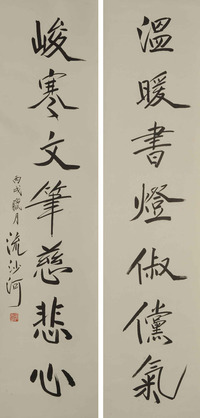 溫暖書燈俶儻氣
峻寒文筆慈悲心
丙戌臘月
流沙河